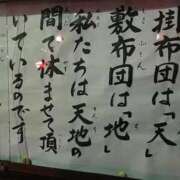 掛布団は「天」
敷布団は「地」
私たちは天地の
間で休ませて頂
いているのです